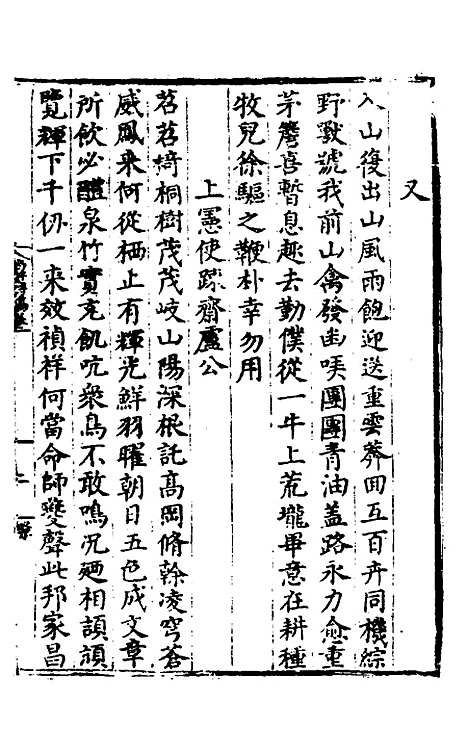 又
入山復出山風雨飽迎送重雲莽回互百卉同機綜
野獸號我前山禽發幽哢團團青油蓋路永力愈重
茅簷喜暫息趣去勤僕從一牛上荒壠畢意在耕種
牧兒徐驅之鞭朴幸勿用
上憲使踈齋盧公
苕苕椅桐樹茂茂岐山陽深根託高岡脩幹凌穹蒼
威鳳来何從栖止有輝光鮮羽曜朝日五色成文章
所飲必醴泉竹實充飢吭衆鳥不敢鳴况廼相頡頏
覽輝下千仞一来效禎祥何當命師夔聲此邦家昌